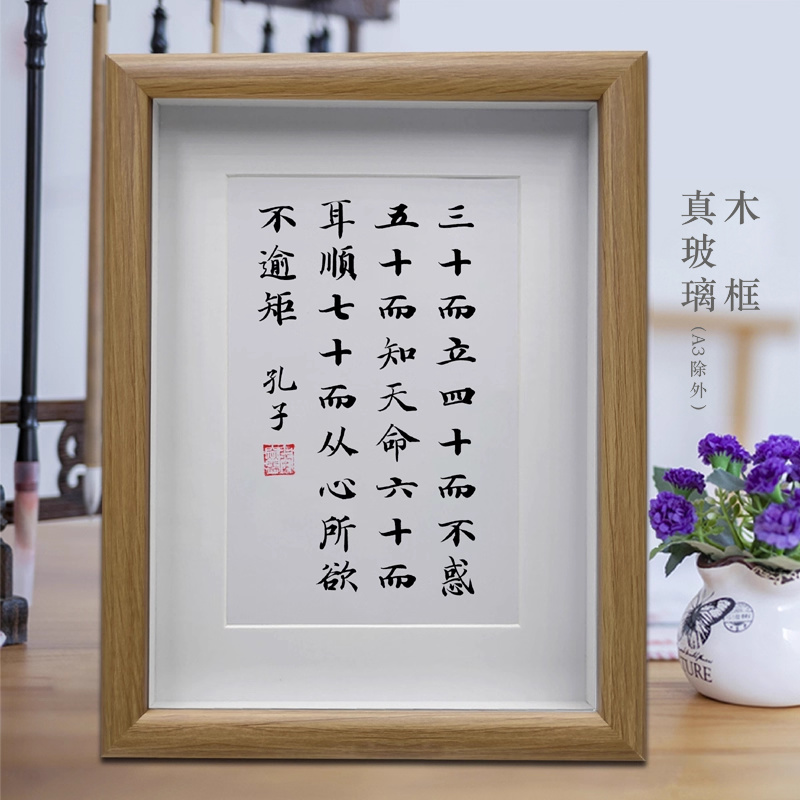 三十而立四十而不惑
五十而知天命六十而
耳順七十而从心所欲
不逾矩 孔子
木框
真玻璃(A3除外)
TURE